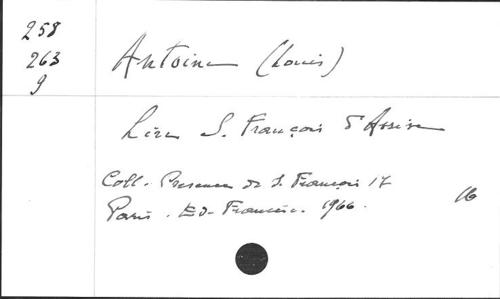 258
263
9
Antoine (Louis)
Lire S. François d'Assise
Coll. Presence de S. François 17
Paris. Ed. Francisc. 1966.
16